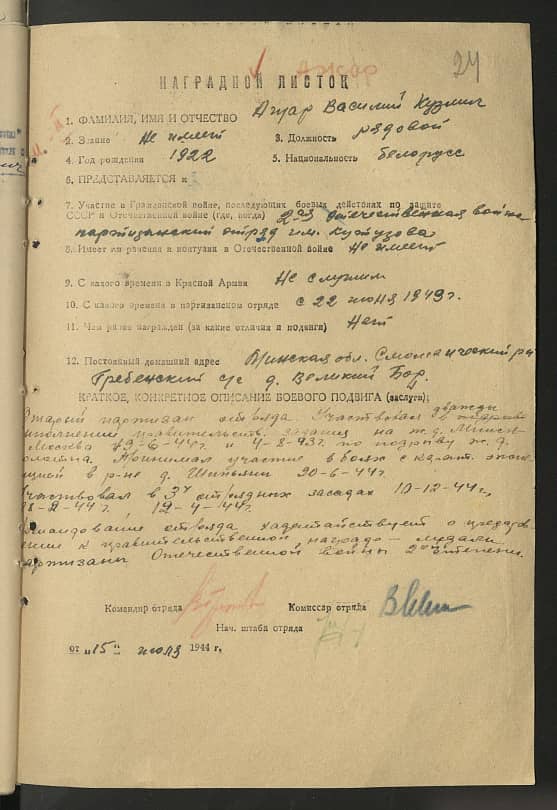 Ажар
24
НАГРАДНОЙ ЛИСТОК
1. ФАМИЛИЯ, ИМЯ И ОТЧЕСТВО Ажар Василий Кузмич
2. Звание Не имеет 3. Должность рядовой
4. Год рождения 1922 5. Национальность белорусс
6. ПРЕДСТАВЛЯЕТСЯ к
7. Участие в Гражданской войне, последующих боевых действиях по защите
СССР и Отечественной войне (где, когда) 2-ая отечественная война
партизанский отряд им. Кутузова
8. Имеет ли ранения и контузии в Отечественной войне Не имеет
9. С какого времени в Красной Армии Не служил
10. С какого времени в партизанском отряде с 22 июня 1943 г.
11. Чем ранее награжден (за какие отличия и подвиги) Нет
12. Постоянный домашний адрес Минская обл. Смолевический р-н
Гребенский с/с д. Великий Бор.
КРАТКОЕ, КОНКРЕТНОЕ ОПИСАНИЕ БОЕВОГО ПОДВИГА (заслуги):
Старый партизан отряда. Участвовал дважды в
выполнении правительств. задания на ж.д. Минск-
Москва 19-6-44г. и 4-8-43г. по подрыву ж.д.
Принимал участие в боях с карат.
в р-не д. 20-6-44г.
Участвовал в 3х отрядных засадах 10-12-44г.,
12-4-44г.
Командование отряда ходатайствует о
к правительственной награде – медали
партизану Отечественной войны 2ой степени.
Командир отряда Комиссар отряда
Нач. штаба отряда
от „15“ июля 1944 г.